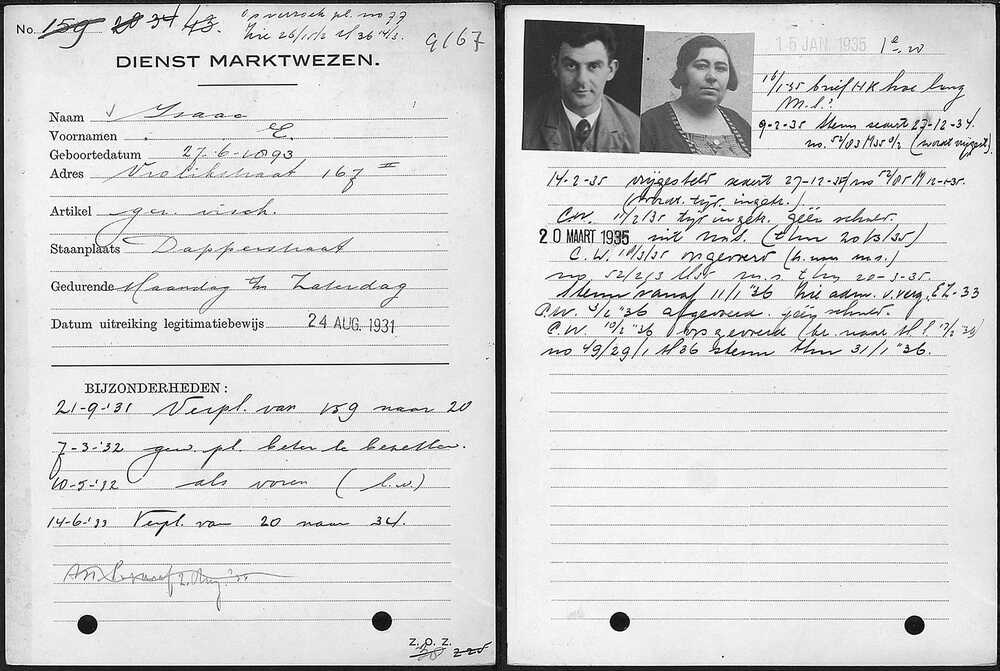 No. 159 20 34 43. Op verzoek pl. no 77
Zie 26/15/2 M/36 4/3. 9167
DIENST MARKTWEZEN.
Naam Isaac
Voornamen E.
Geboortedatum 27-6-1893
Adres Vrolikstraat 167 II
Artikel ger. visch.
Staanplaats Dapperstraat
Gedurende Maandag t/m Zaterdag
Datum uitreiking legitimatiebewijs 24 AUG. 1931
BIJZONDERHEDEN:
21-9-'31 Verpl. van 159 naar 20
7-3-'32 gew. pl. beter te bezetten.
10-5-'32 als voren (b.v.)
14-6-'33 Verpl. van 20 naar 34.
Z. O. Z.
15 JAN. 1935 1e
16/1 35 brief HK hoe lang
M.S.?
9-2-35 Steun sedert 27-12-34.
no. 52/03/1935 (wordt vrijgest.)
14-2-35 vrijgesteld sedert 27-12-34/no 52/05/M 12-1-35.
C.W. 11/2/35 tijd. ingetr. géén schuld.
20 MAART 1935 uit M.S. (t/m 20/3/35)
C.W. 19/3/35 opgevoerd (b. van m.s.)
no. 52/2/3 M35 m.s. t/m 20-3-35.
Steun vanaf 11/1 '36 Zie adm. v. verg. EZ-33
C.W. 3/2 '36 afgevoerd. géén schuld.
C.W. 10/2 '36 opgevoerd
no 49/29/1 M36 steun t/m 31/1 '36.